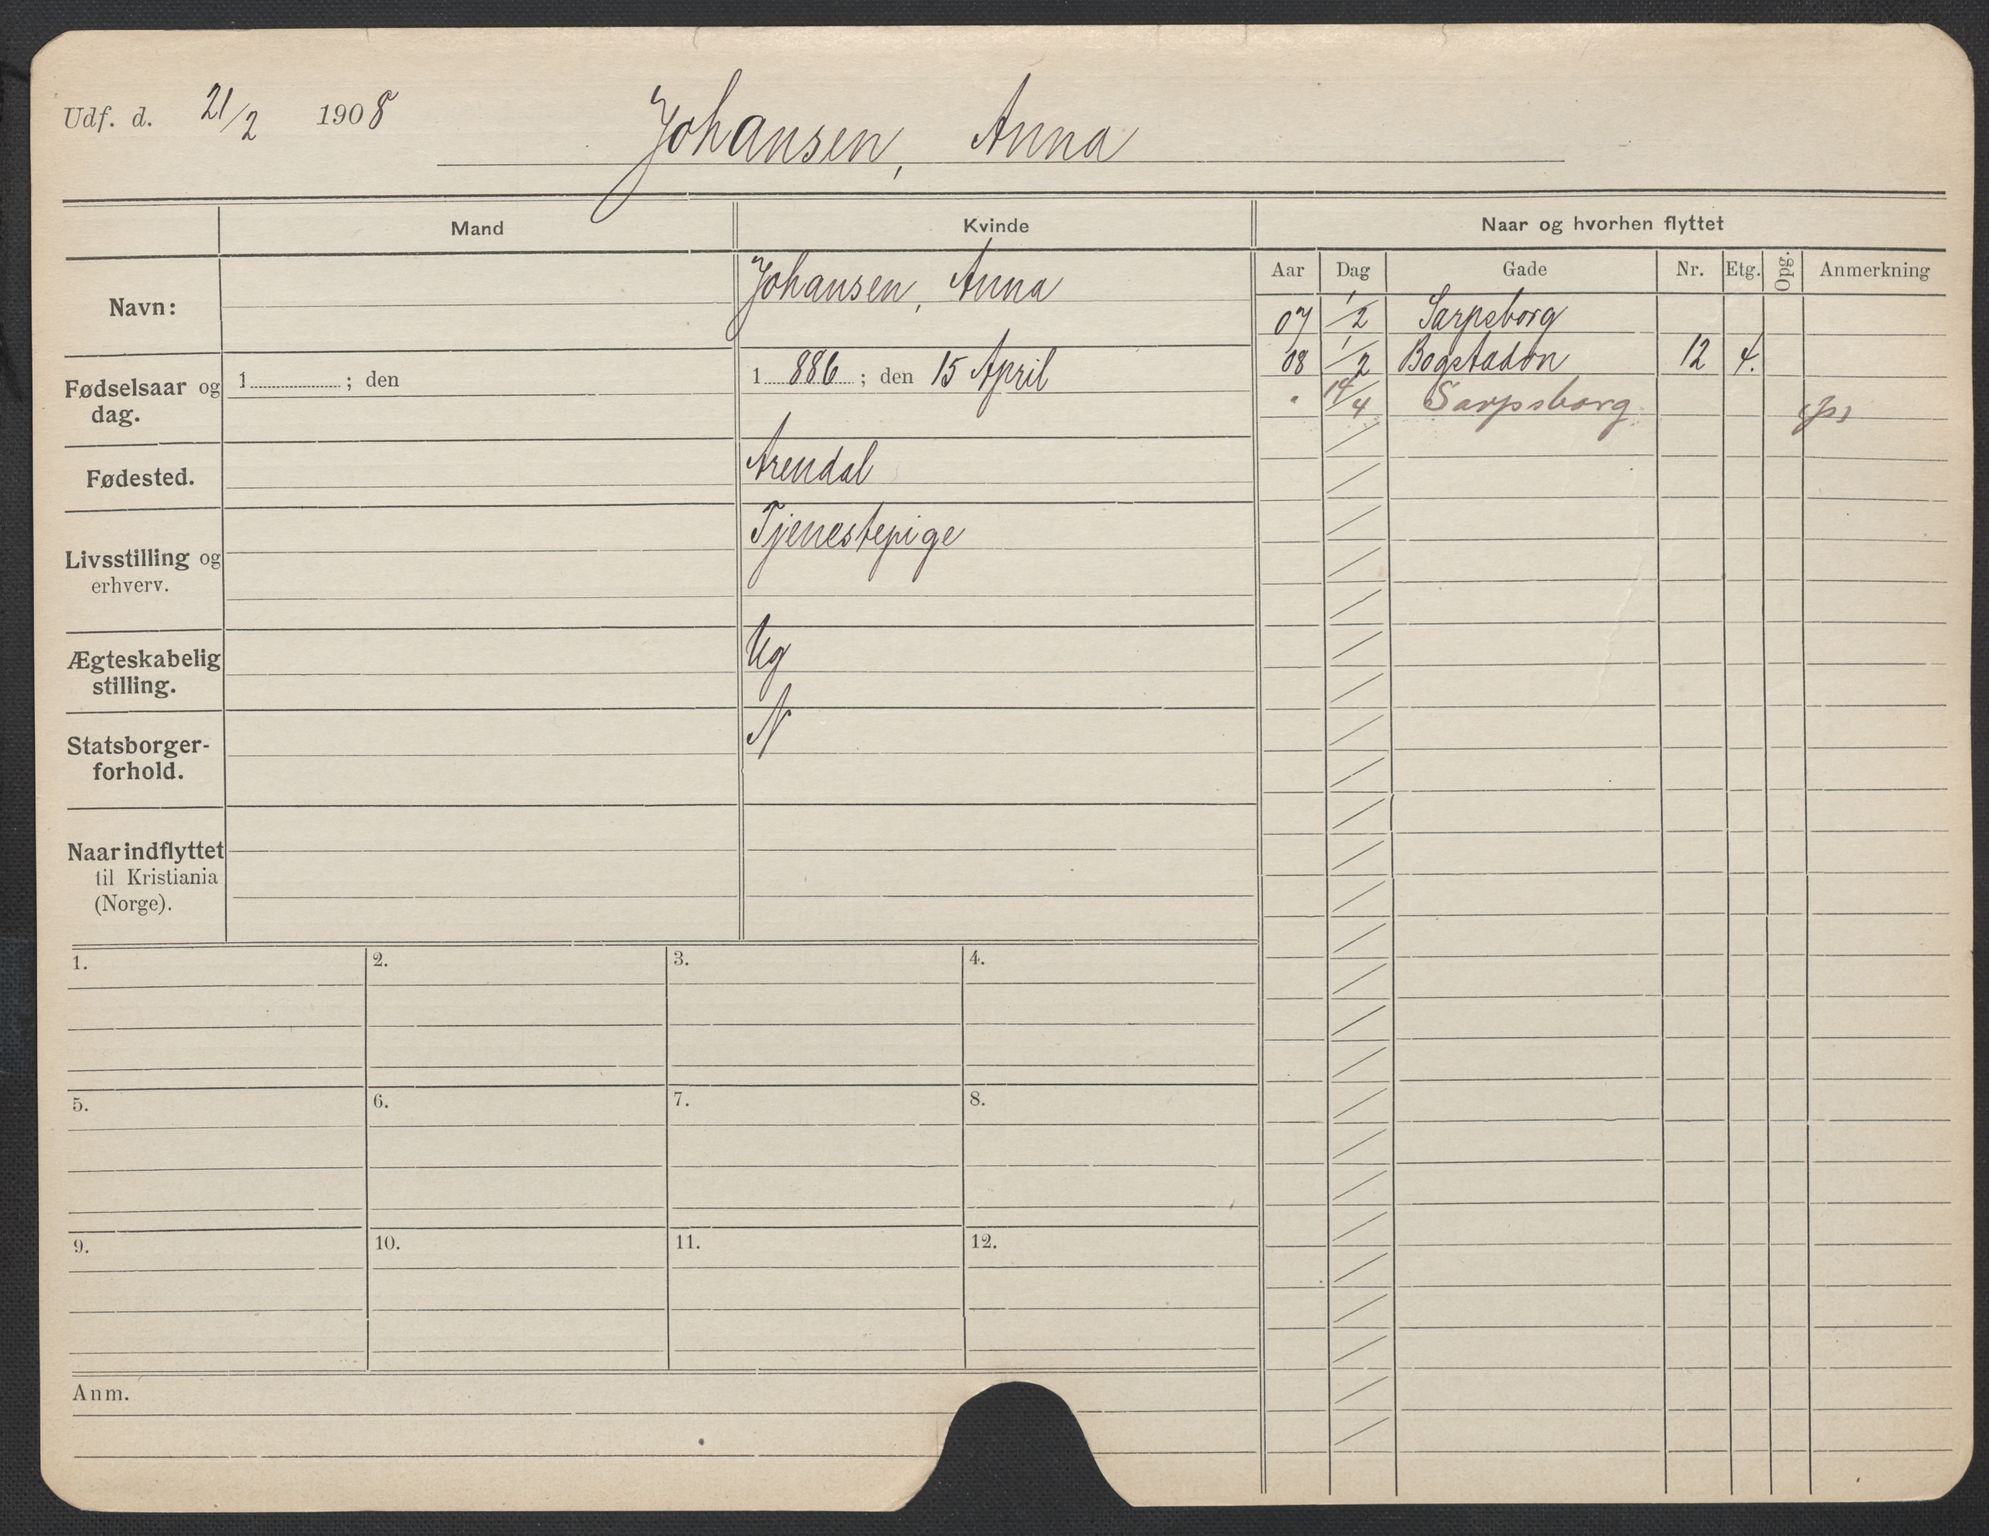 Udf. d. 21/2 1908 Johansen, Anna
Mand Kvinde Naar og hvorhen flyttet
Aar Dag Gade Nr. Etg. Opg. Anmerkning
Navn: Johansen, Anna
07 1/2 Sarpsborg
08 1/2 Bogstadvn 12 4.
" 14/4 Sarpsborg
Fødselsaar og dag. 1 ; den 1 886 ; den 15 April
Fødested. Arendal
Livsstilling og erhverv. Tjenestepige
Ægteskabelig stilling. Ug
Statsborger-
forhold. N
Naar indflyttet
til Kristiania
(Norge).
1. 2. 3. 4.
5. 6. 7. 8.
9. 10. 11. 12.
Anm.